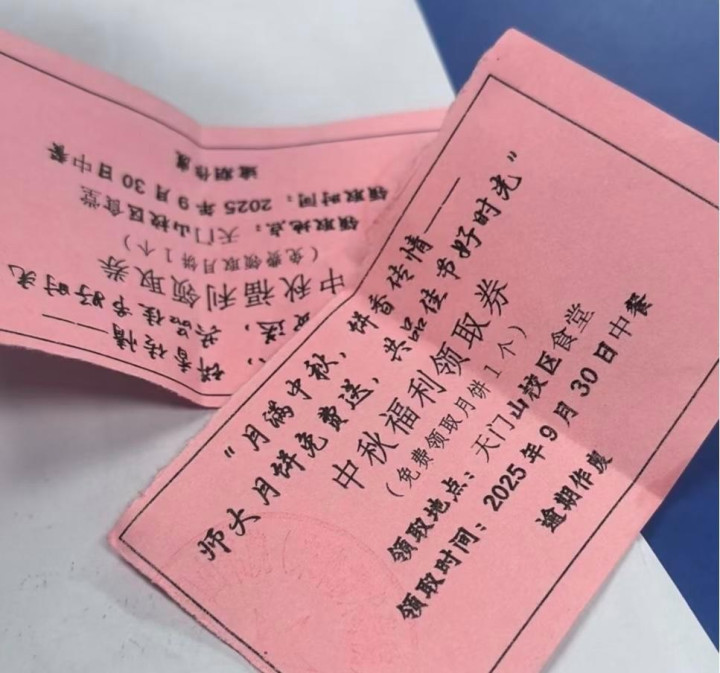 “月满中秋，饼香传情——
师大月饼免费送，共品佳节好时光”
中秋福利领取券
（免费领取月饼1个）
领取地点：天门山校区食堂
领取时间：2025年9月30日中餐
逾期作废
饼香传情——
送，共品佳节好时光
中秋福利领取券
（免费领取月饼1个）
领取地点：天门山校区食堂
领取时间：2025年9月30日中餐
逾期作废